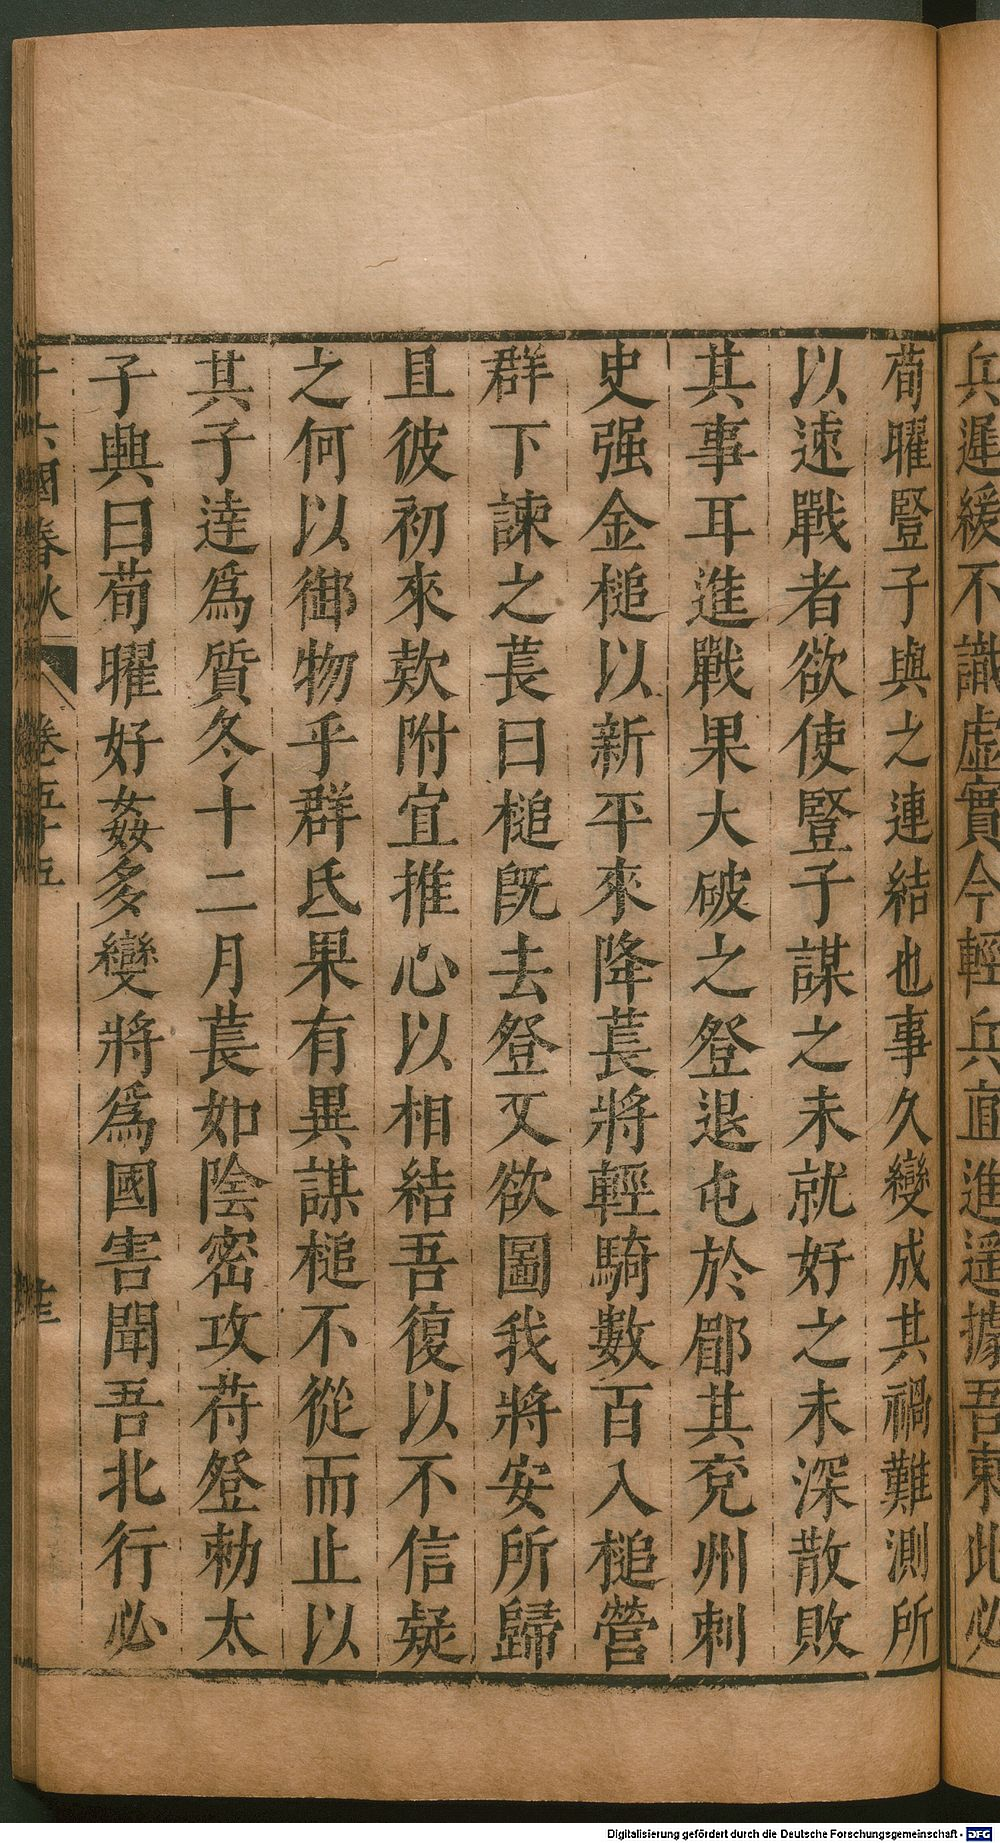 兵遲緩不識虛實今輕兵直進遥據吾東此必
荀曜豎子與之連結也事久變成其禍難測所
以速戰者欲使豎子謀之未就好之未深散敗
其事耳進戰果大破之登退屯於郿其兖州刺
史强金槌以新平來降萇將輕騎數百入槌營
群下諫之萇曰槌旣去登又欲圖我將安所歸
且彼初來欵附宜推心以相結吾復以不信疑
之何以御物乎群氐果有異謀槌不從而止以
其子逹爲質冬十二月萇如陰密攻苻登勅太
子興曰荀曜好姦多變將爲國害聞吾北行必
十六國春秋 卷五十五
Digitalisierung gefördert durch die Deutsche Forschungsgemeinschaft - DFG